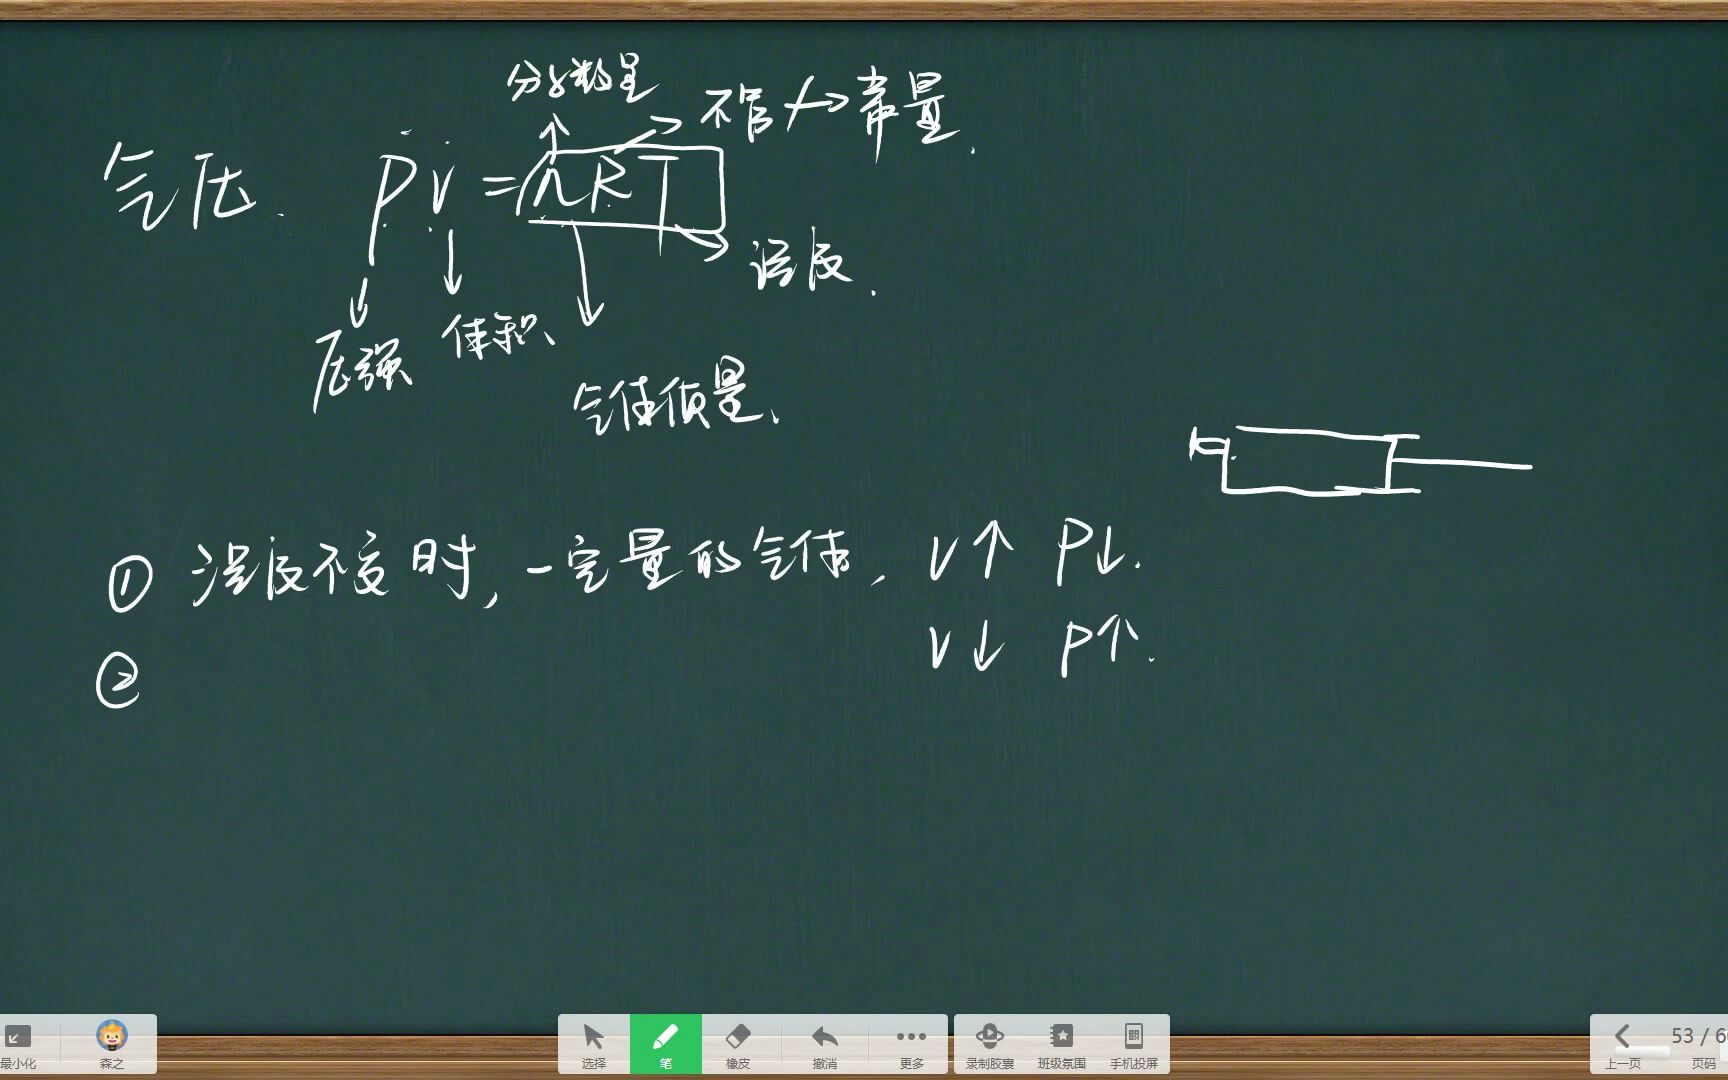 分子数量
不管 常量.
气压. pV=nRT
温度.
压强 体积、
气体质量、
① 温度不变时,一定量的气体, V↑ P↓.
V↓ P↑.
②
最小化 森之 选择 笔 橡皮 撤消 更多 录制胶囊 班级氛围 手机投屏 上一页 53 / 6 页码